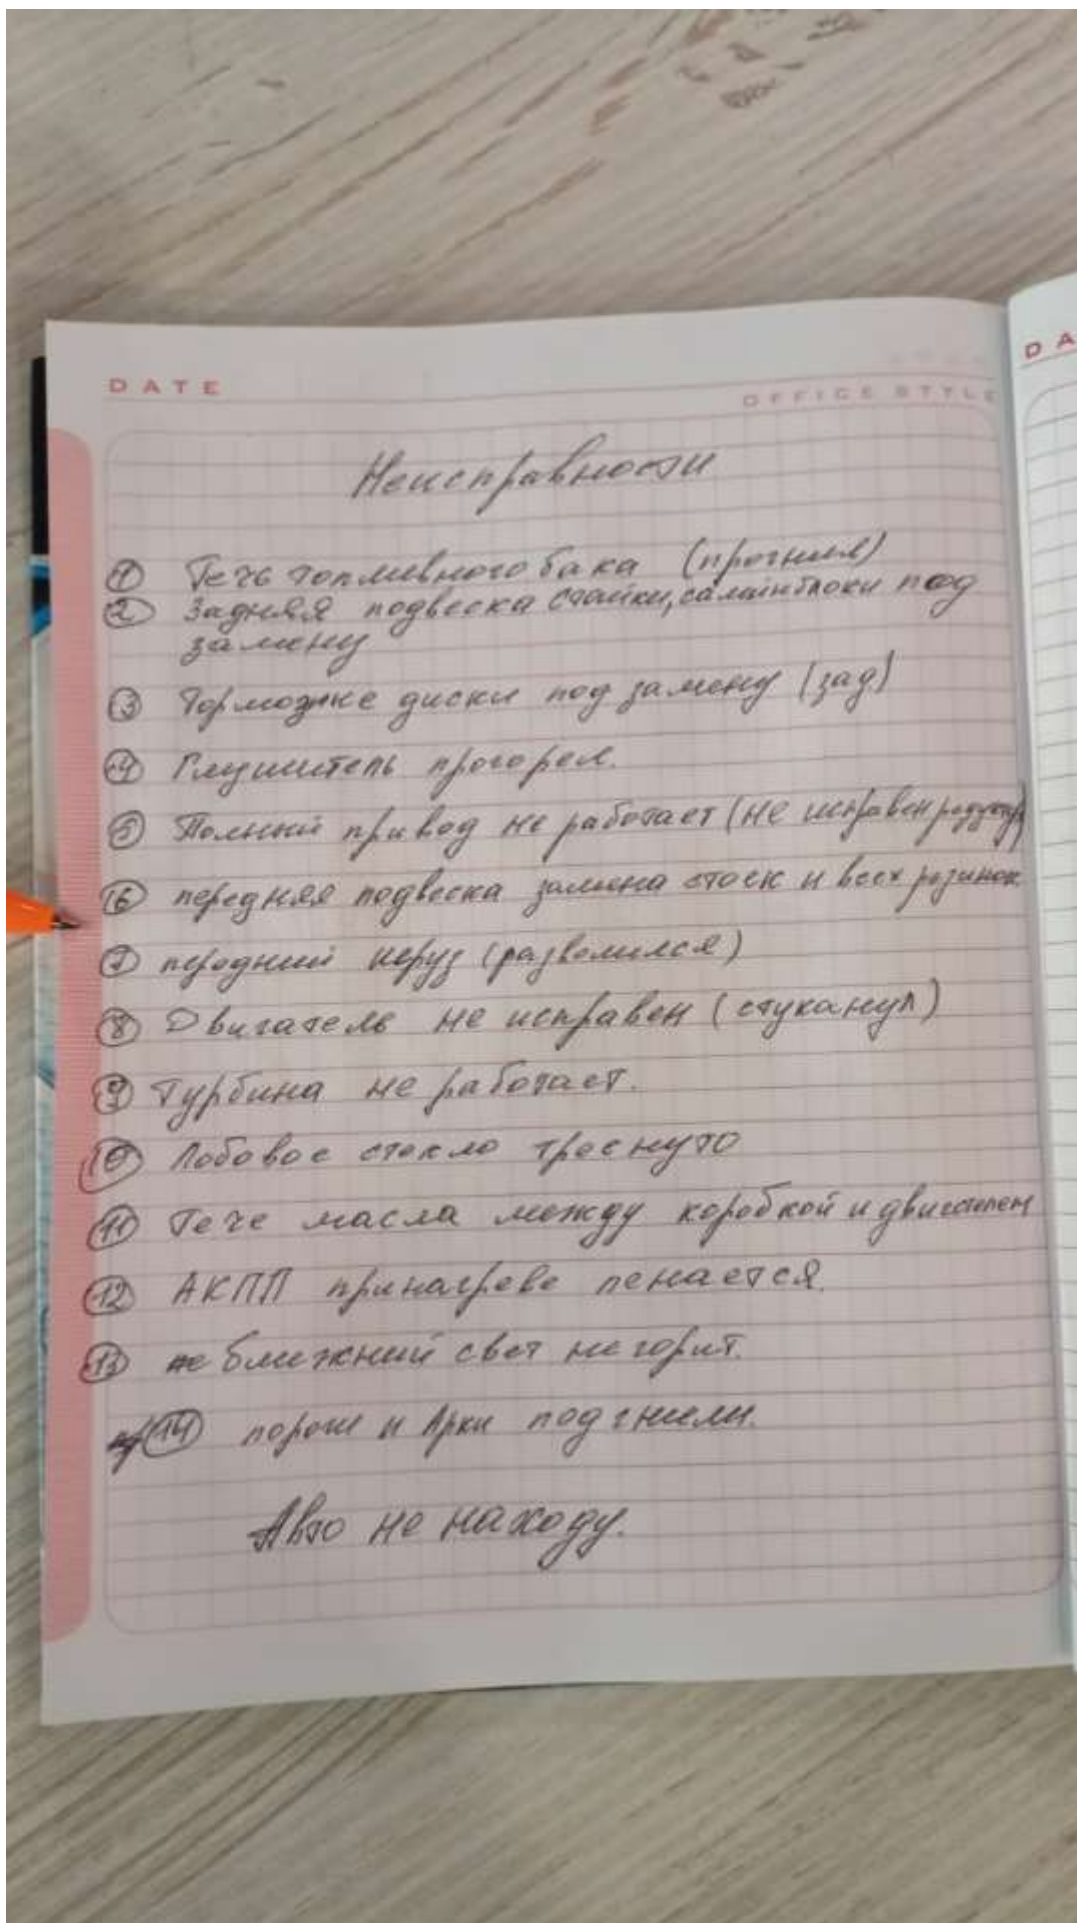 DATE
OFFICE STYLE
DA
Неисправности
1 Течь топливного бака (прогнил)
2 Задняя подвеска стойки, салинблоки под
замену
3 Тормозные диски под замену (зад)
4 Глушитель прогорел.
5 Полный привод не работает (не исправен редуктор)
6 передняя подвеска замена стоек и всех резинок
7 передний (развалился)
8 Двигатель не исправен (стуканул)
9 Турбина не работает.
10 Лобовое стекло треснуто
11 Тече масла между коробкой и двигателем
12 АКПП принагреве пенается.
13 ближний свет не горит.
14 порош и Арки подгнили.
Авто не находу.